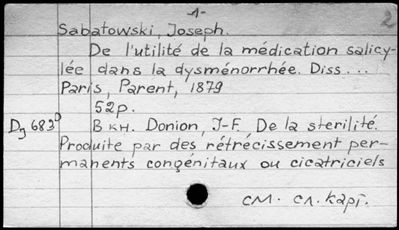 -1-
2
Sabatowski, Joseph.
De l'utilité de la médication salicy-
lée dans la dysménorrhée. Diss...
Paris, Parent, 1879
52p.
Dg 683⁰ В кн. Donion, J-F, De la sterilité.
Produite par des rétrécissement per-
manents congénitaux ou cicatriciels
см. сл. карт.